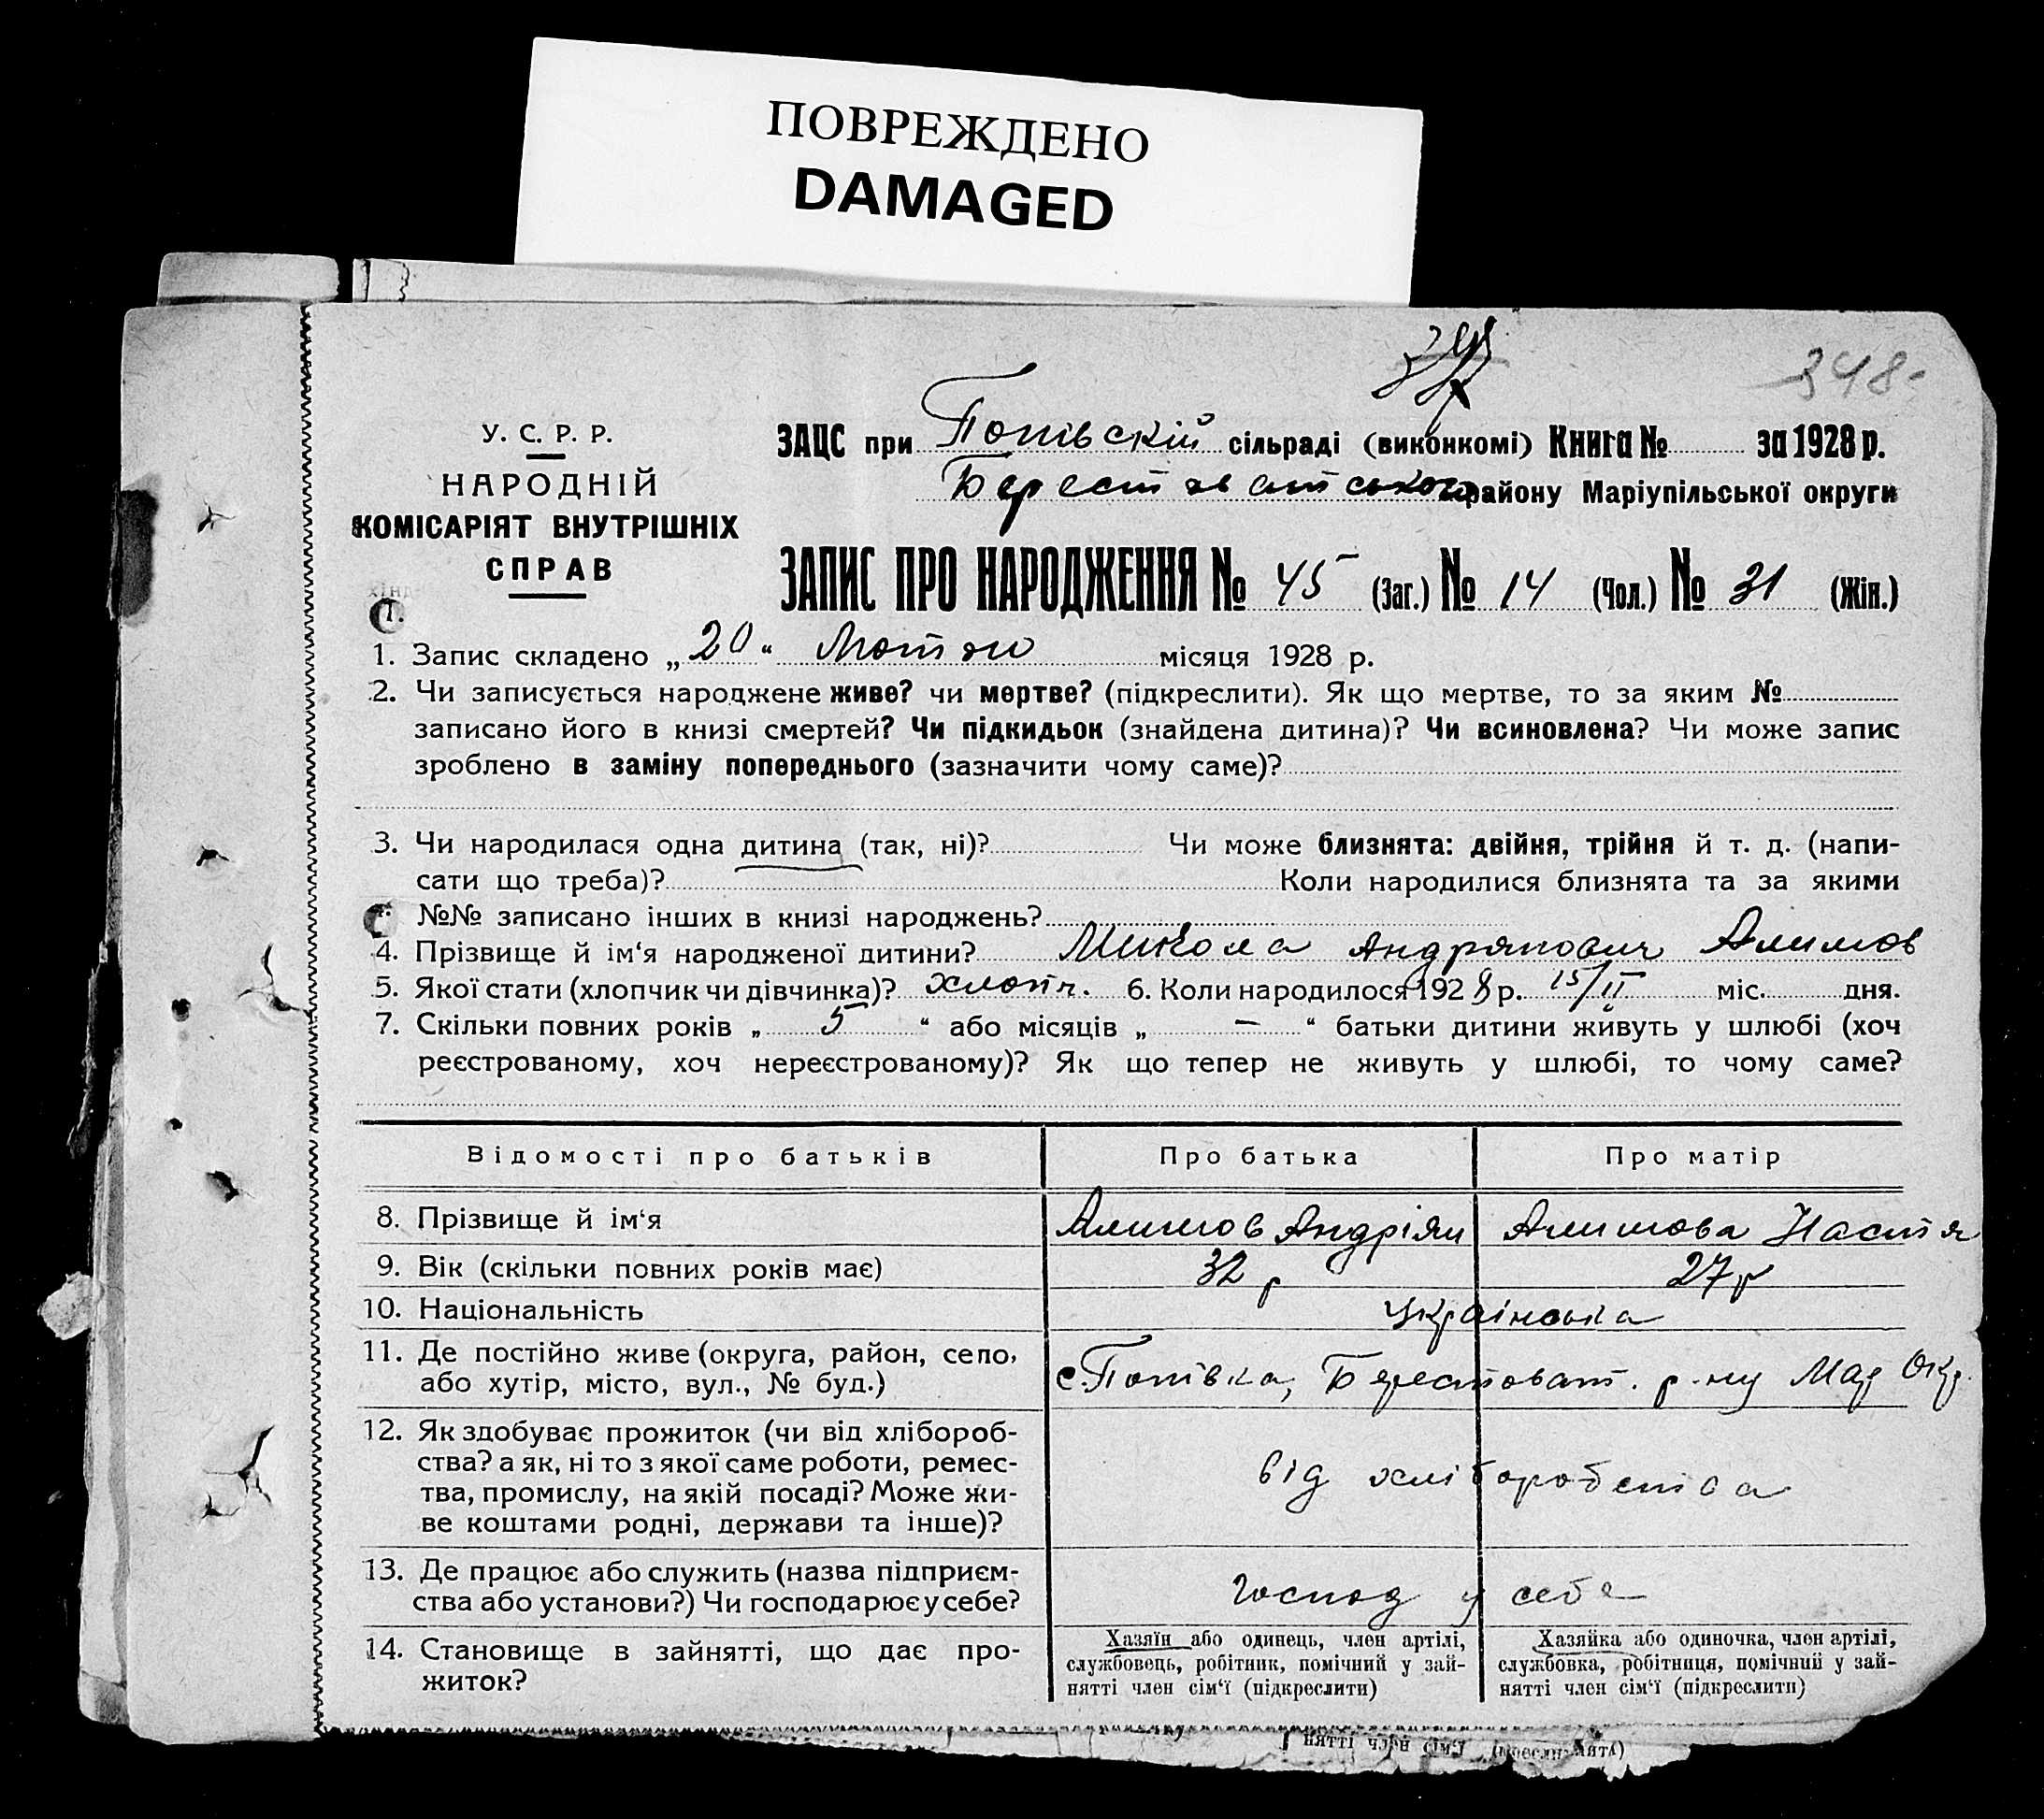 ПОВРЕЖДЕНО
DAMAGED
348
У. С. Р. Р.
НАРОДНІЙ
КОМІСАРІЯТ ВНУТРІШНІХ
СПРАВ
ЗАЦС при Попівскій сільраді (виконкомі) Книга № за 1928 р.
Берестоватського району Маріупільської округи
ЗАПИС ПРО НАРОДЖЕННЯ № 45 (Заг.) № 14 (Чол.) № 31 (Жін.)
1. Запис складено „20“ Лютого місяця 1928 р.
2. Чи записується народжене живе? чи мертве? (підкреслити). Як що мертве, то за яким №
записано його в книзі смертей? Чи підкидьок (знайдена дитина)? Чи всиновлена? Чи може запис
зроблено в заміну попереднього (зазначити чому саме)?
3. Чи народилася одна дитина (так, ні)? Чи може близнята: двійня, трійня й т. д. (напи-
сати що треба)? Коли народилися близнята та за якими
№№ записано інших в книзі народжень?
4. Прізвище й ім‘я народженої дитини? Микола Андріянович Алимов
5. Якої стати (хлопчик чи дівчинка)? хлопч. 6. Коли народилося 1928 р. 15/II міс. дня.
7. Скільки повних років „ 5 “ або місяців „ — “ батьки дитини живуть у шлюбі (хоч
реєстрованому, хоч нереєстрованому)? Як що тепер не живуть у шлюбі, то чому саме?
Відомості про батьків Про батька Про матір
8. Прізвище й ім‘я Алимов Андріян Алимова Настя
9. Вік (скільки повних років має) 32 р 27 р
10. Національність українська
11. Де постійно живе (округа, район, село,
або хутір, місто, вул., № буд.) с. Попівка, Берестоват. р-ну Мар Окр.
12. Як здобуває прожиток (чи від хлібороб-
ства? а як, ні то з якої саме роботи, ремес-
тва, промислу, на якій посаді? Може жи-
ве коштами родні, держави та інше)? від хліборобства
13. Де працює або служить (назва підприєм-
ства або установи?) Чи господарює у себе? господ у себе
14. Становище в зайнятті, що дає про-
житок?
Хазяїн або одинець, член артілі,
службовець, робітник, помічний у зай-
нятті член сім‘ї (підкреслити)
Хазяйка або одиночка, член артілі,
службовка, робітниця, помічний у зай-
нятті член сім‘ї (підкреслити)